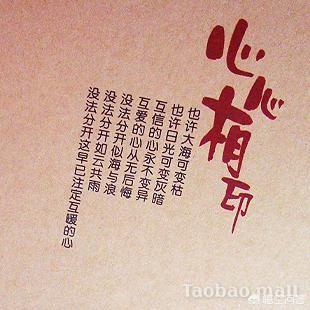 心心有印
也许大海可变枯
也许日光可变灰暗
互信的心永不变异
互爱的心从无后悔
没法分开似海与浪
没法分开如云共雨
没法分开这早已注定互暖的心
Taobao.mall